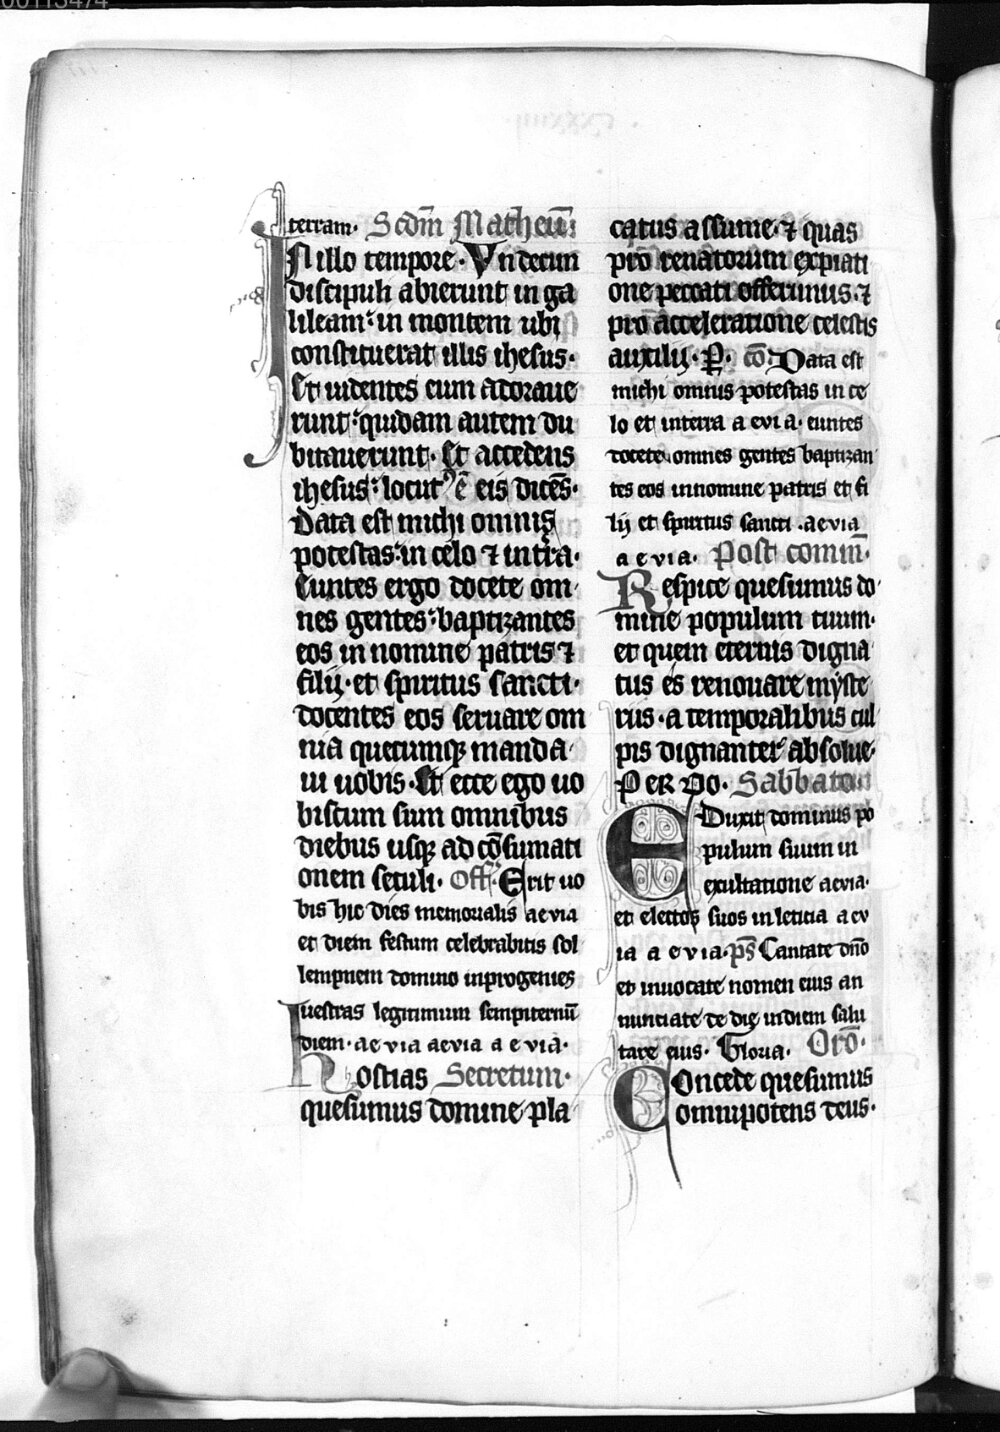 00115474
terram. Scdm Matheum:
In illo tempore. Undecim
discipuli abierunt in ga
lileam: in montem ubi
constituerat illis ihesus.
Et videntes eum adoraue
runt: quidam autem du
bitauerunt. Et accedens
ihesus: locutꝰ ē eis dicēs.
Data est michi omnis
potestas: in celo ⁊ in tr̄a.
Euntes ergo docete om
nes gentes: baptizantes
eos in nomine patris ⁊
filij. et spiritus sancti.
docentes eos seruare om
nia quecumqꝫ manda
ui uobis. Et ecce ego uo
biscum sum omnibus
diebus usqꝫ ad cōsumati
onem seculi. Off. Erit uo
bis hic dies memorialis aevia
et diem festum celebrabitis sol
lempnem domino in progenies
uestras legitimum sempiternū
diem. aevia aevia a e via.
Hostias Secretum.
quesumus domine pla
catus assume. ⁊ quas
pro renatorum expiati
one peccati offerimus. ⁊
pro acceleratione celestis
auxilij. P. cō: Data est
michi omnis potestas in ce
lo et in terra a evi a. euntes
docete omnes gentes baptizan
tes eos in nomine patris et fi
lij et spiritus sancti. aevia
a e v i a. Post comm̄.
Respice quesumus do
mine populum tuum.
et quem eternis digna
tus es renouare myste
riis. a temporalibus cul
pis dignanter absolue.
PER DO. Sabbato
Eduxit dominus po
pulum suum in
exultatione aevia.
et electos suos in leticia a ev
ia a e v i a. ps̄ Cantate dn̄o
et inuocate nomen eius an
nunciate de die in diem salu
tare eius. Gloria. Orō.
Concede quesumus
omnipotens deus.